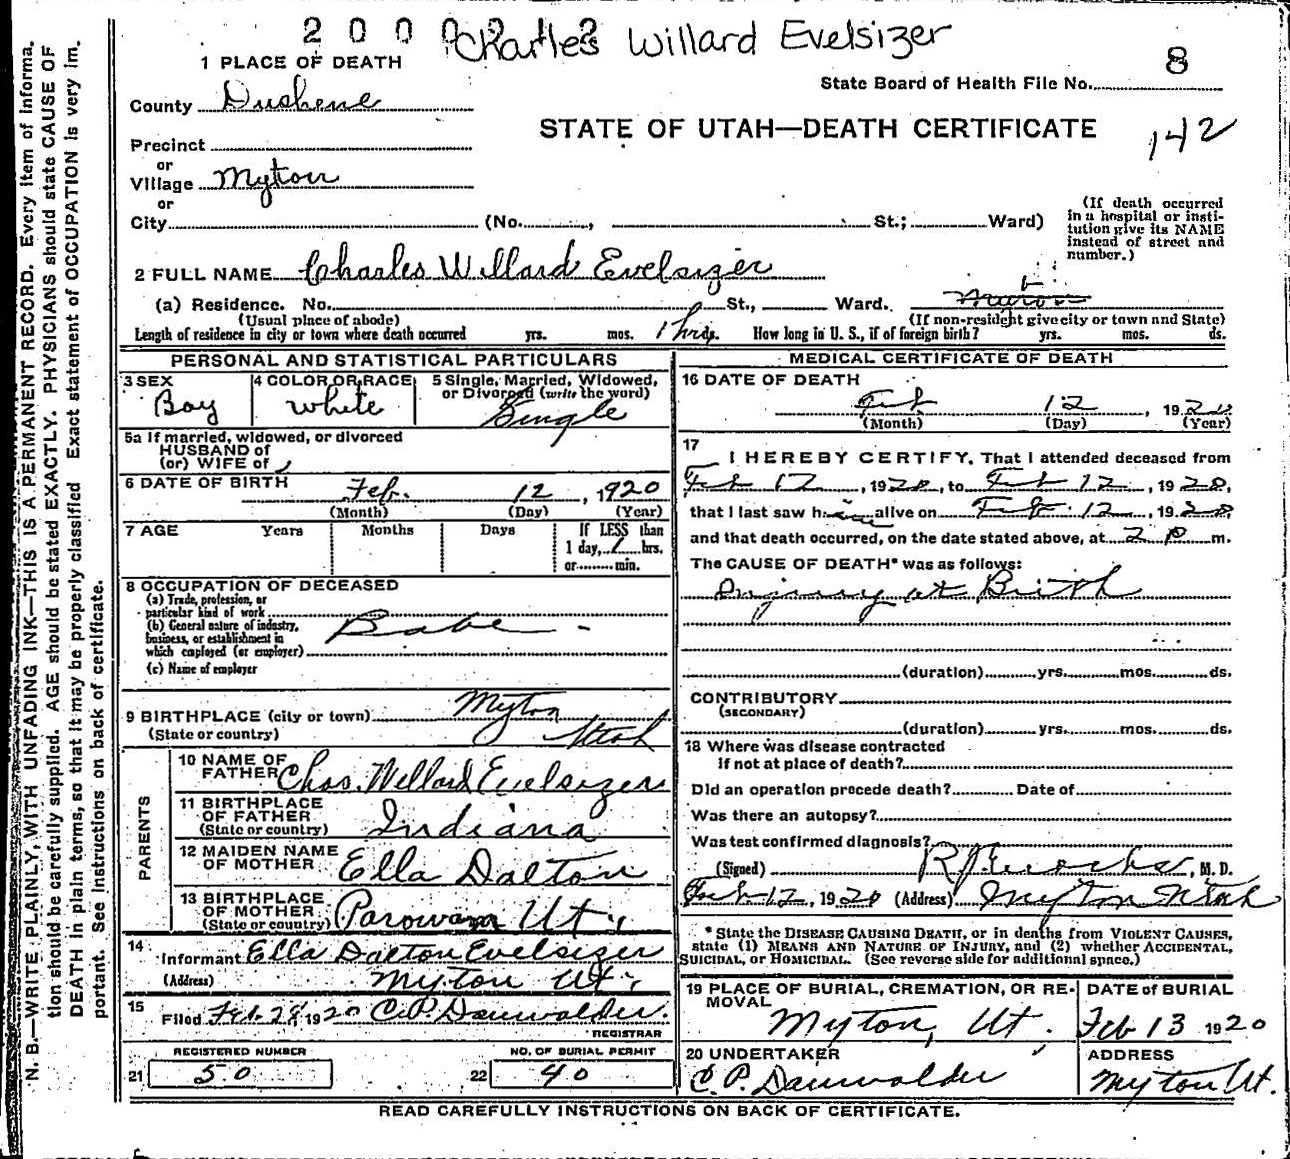 2 0 0 Charles Willard Evelsizer
8
1 PLACE OF DEATH
State Board of Health File No.
County Duchene
STATE OF UTAH—DEATH CERTIFICATE
142
Precinct
or
Village Myton
or
City (No. , St.; Ward)
(If death occurred in a hospital or insti-
tution give its NAME
instead of street and
number.)
2 FULL NAME Charles Willard Evelsizer
(a) Residence. No. St., Ward. Myton
(Usual place of abode) (If non-resident give city or town and State)
Length of residence in city or town where death occurred yrs. mos. 1 hr ds. How long in U. S., if of foreign birth? yrs. mos. ds.
PERSONAL AND STATISTICAL PARTICULARS
3 SEX Boy
4 COLOR OR RACE White
5 Single, Married, Widowed,
or Divorced (write the word)
Single
5a If married, widowed, or divorced
HUSBAND of
(or) WIFE of
6 DATE OF BIRTH
Feb. 12, 1920
(Month) (Day) (Year)
7 AGE Years Months Days If LESS than
1 day, 1 hrs.
or min.
8 OCCUPATION OF DECEASED
(a) Trade, profession, or
particular kind of work
(b) General nature of industry,
business, or establishment in
which employed (or employer)
Babe
(c) Name of employer
9 BIRTHPLACE (city or town) Myton
(State or country) Utah
PARENTS
10 NAME OF
FATHER Chas. Willard Evelsizer
11 BIRTHPLACE
OF FATHER
(State or country) Indiana
12 MAIDEN NAME
OF MOTHER Ella Dalton
13 BIRTHPLACE
OF MOTHER
(State or country) Parowan Ut.
14
Informant Ella Dalton Evelsizer
(Address) Myton Ut.
15
Filed Feb. 28, 1920 C.P. Dauwalder.
REGISTRAR
REGISTERED NUMBER
21 50
NO. OF BURIAL PERMIT
22 40
MEDICAL CERTIFICATE OF DEATH
16 DATE OF DEATH
Feb 12, 1920
(Month) (Day) (Year)
17
I HEREBY CERTIFY, That I attended deceased from
Feb 12, 1920, to Feb 12, 1920,
that I last saw him alive on Feb. 12, 1920
and that death occurred, on the date stated above, at 2 P m.
The CAUSE OF DEATH* was as follows:
Injury at Birth
(duration) yrs. mos. ds.
CONTRIBUTORY
(SECONDARY)
(duration) yrs. mos. ds.
18 Where was disease contracted
if not at place of death?
Did an operation precede death? Date of
Was there an autopsy?
Was test confirmed diagnosis?
(Signed) , M. D.
Feb 12, 1920 (Address) Myton Utah
* State the DISEASE CAUSING DEATH, or in deaths from VIOLENT CAUSES,
state (1) MEANS AND NATURE OF INJURY, and (2) whether ACCIDENTAL,
SUICIDAL, or HOMICIDAL. (See reverse side for additional space.)
19 PLACE OF BURIAL, CREMATION, OR RE-
MOVAL
Myton, Ut.
DATE of BURIAL
Feb 13 1920
20 UNDERTAKER
C. P. Dauwalder
ADDRESS
Myton Ut.
READ CAREFULLY INSTRUCTIONS ON BACK OF CERTIFICATE.
N. B.—WRITE PLAINLY, WITH UNFADING INK—THIS IS A PERMANENT RECORD. Every item of informa-
tion should be carefully supplied. AGE should be stated EXACTLY. PHYSICIANS should state CAUSE OF
DEATH in plain terms, so that it may be properly classified. Exact statement of OCCUPATION is very im-
portant. See instructions on back of certificate.